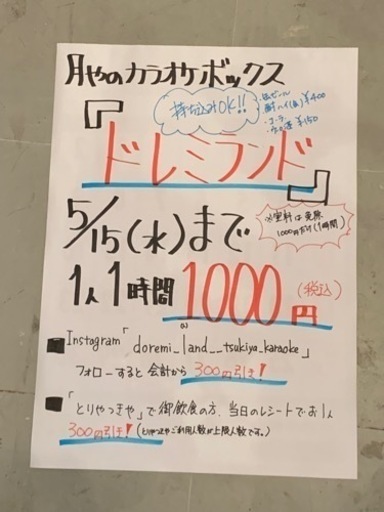 月やのカラオケボックス
持ち込みOK!!
・缶ビール
¥400
・コーラ
¥150
『ドレミランド』
5/15(水)まで
※室料は免除
1000円だけ(1時間)
1人1時間 1000円(税込)
■ Instagram「doremi_land__tsukiya_karaoke」
(a)
フォローすると会計から300円引き!
■「とりやつきや」で御飲食の方、当日のレシートでお1人
300円引き!(とりやつきやご利用人数が上限人数です。)